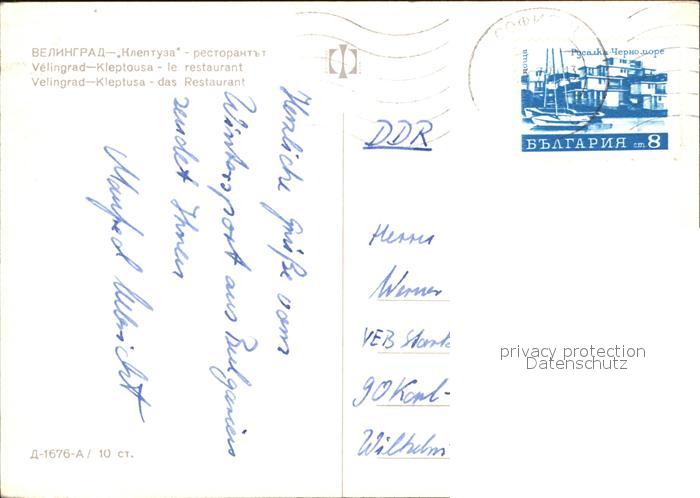 ВЕЛИНГРАД—„Клептуза“ - ресторантът
Vélingrad—Kleptousa - le restaurant
Velingrad—Kleptusa - das Restaurant
Herzliche Grüße vom
Wintersport aus Bulgarien
sendet Ihnen
Manfred Ulbricht
Д-1676-А / 10 ст.
СОФИЯ
Русалка Черно море
БЪЛГАРИЯ ст 8
DDR
Herrn
Werner
VEB Stark
90 Karl-
Wilhelm
privacy protection
Datenschutz